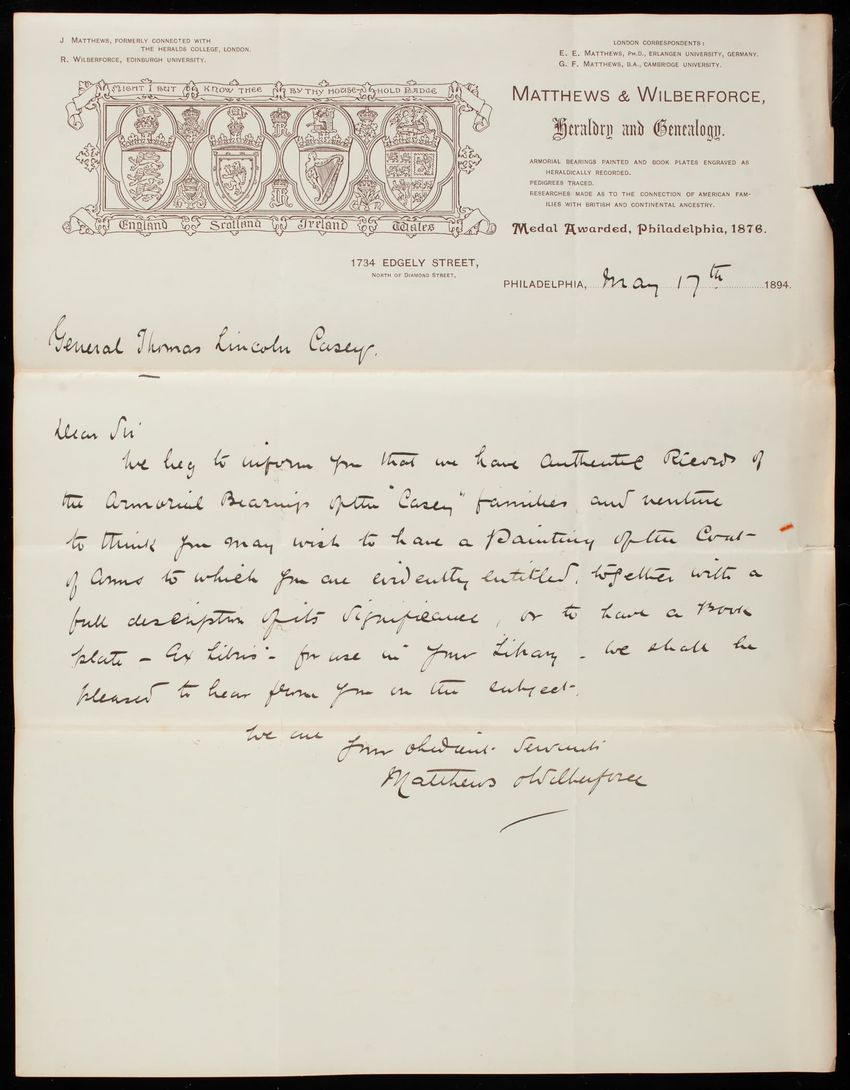 J Matthews, formerly connected with
the Heralds College, London.
R. Wilberforce, Edinburgh University.
London Correspondents:
E. E. Matthews, Ph.D., Erlangen University, Germany.
G. F. Matthews, B.A., Cambridge University.
Might I but know thee by thy household badge
England Scotland Ireland Wales
Matthews & Wilberforce,
Heraldry and Genealogy.
Armorial bearings painted and book plates engraved as
heraldically recorded.
Pedigrees traced.
Researches made as to the connection of American fam-
ilies with British and Continental ancestry.
Medal Awarded, Philadelphia, 1876.
1734 Edgely Street,
North of Diamond Street,
Philadelphia, May 17th 1894.
General Thomas Lincoln Casey.
Dear Sir
We beg to inform you that we have authentic Records of
the Armorial Bearings of the "Casey" families and venture
to think you may wish to have a Painting of the Coat-
of Arms to which you are evidently entitled, together with a
full description of its significance, or to have a Book
plate - Ex Libris - for use in your Library - We shall be
pleased to hear from you on the subject.
We are
Your obedient Servants
Matthews & Wilberforce